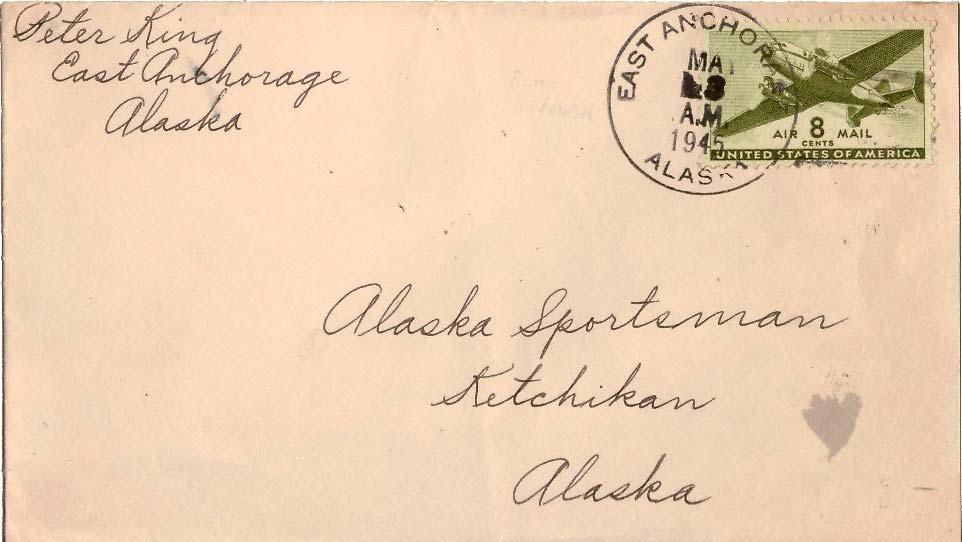 Peter King
East Anchorage
Alaska
EAST ANCHORA
A.M.
1945
ALASKA
AIR 8 MAIL
CENTS
UNITED STATES OF AMERICA
Alaska Sportsman
Ketchikan
Alaska